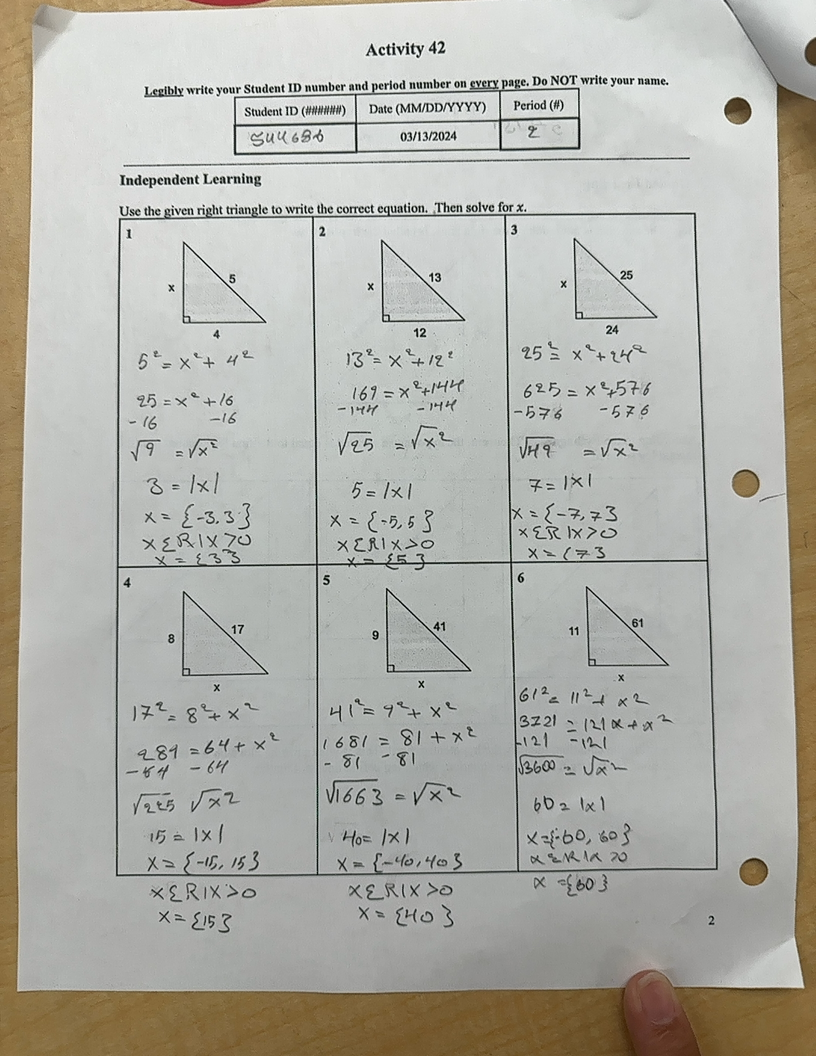 Activity 42
Legibly write your Student ID number and period number on every page. Do NOT write your name.
Student ID (######) Date (MM/DD/YYYY) Period (#)
544686 03/13/2024 2
Independent Learning
Use the given right triangle to write the correct equation. Then solve for x.
1
x 5
4
5² = x² + 4²
25 = x² + 16
-16 -16
√9 = √x²
3 = |x|
x = {-3, 3}
x ∈ R | x > 0
x = {3}
2
x 13
12
13² = x² + 12²
169 = x² + 144
-144 -144
√25 = √x²
5 = |x|
x = {-5, 5}
x ∈ R | x > 0
x = {5}
3
x 25
24
25² = x² + 24²
625 = x² + 576
-576 -576
√49 = √x²
7 = |x|
x = {-7, 7}
x ∈ R | x > 0
x = {7}
4
8 17
x
17² = 8² + x²
289 = 64 + x²
-64 -64
√225 √x²
15 = |x|
x = {-15, 15}
x ∈ R | x > 0
x = {15}
5
9 41
x
41² = 9² + x²
1681 = 81 + x²
-81 -81
√1663 = √x²
40 = |x|
x = {-40, 40}
x ∈ R | x > 0
x = {40}
6
11 61
x
61² = 11² + x²
3721 = 121 x + x²
-121 -121
√3600 = √x²
60 = |x|
x = {-60, 60}
x ∈ R | x > 0
x = {60}
2